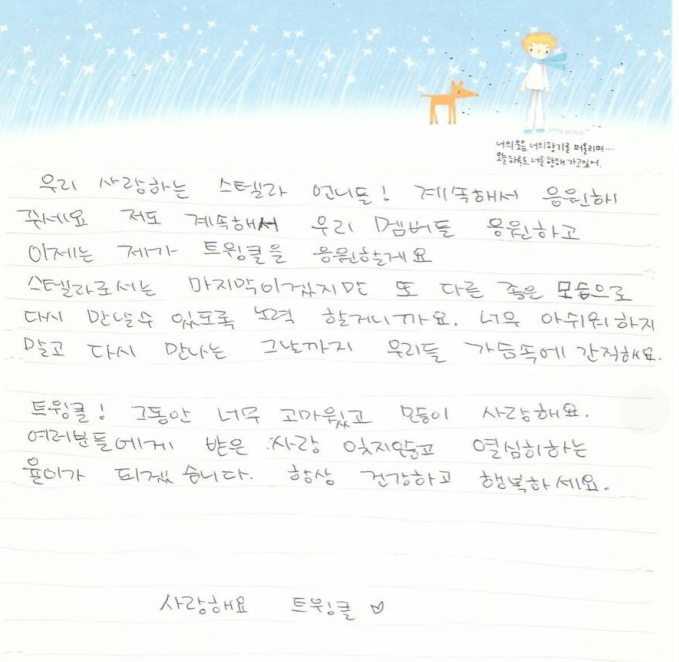 너의 모습, 너의 향기를 떠올리며...
오늘 하루도 너를 향해 가고있어.
우리 사랑하는 스텔라 언니들! 계속해서 응원해
주세요 저도 계속해서 우리 멤버들 응원하고
이제는 제가 트윙클을 응원할게요
스텔라로서는 마지막이겠지만 또 다른 좋은 모습으로
다시 만날수 있도록 노력 할거니까요. 너무 아쉬워하지
말고 다시 만나는 그날까지 우리들 가슴속에 간직해요.
트윙클! 그동안 너무 고마웠고 많이 사랑해요.
여러분들에게 받은 사랑 잊지않고 열심히하는
율이가 되겠습니다. 항상 건강하고 행복하세요.
사랑해요 트윙클 ♡